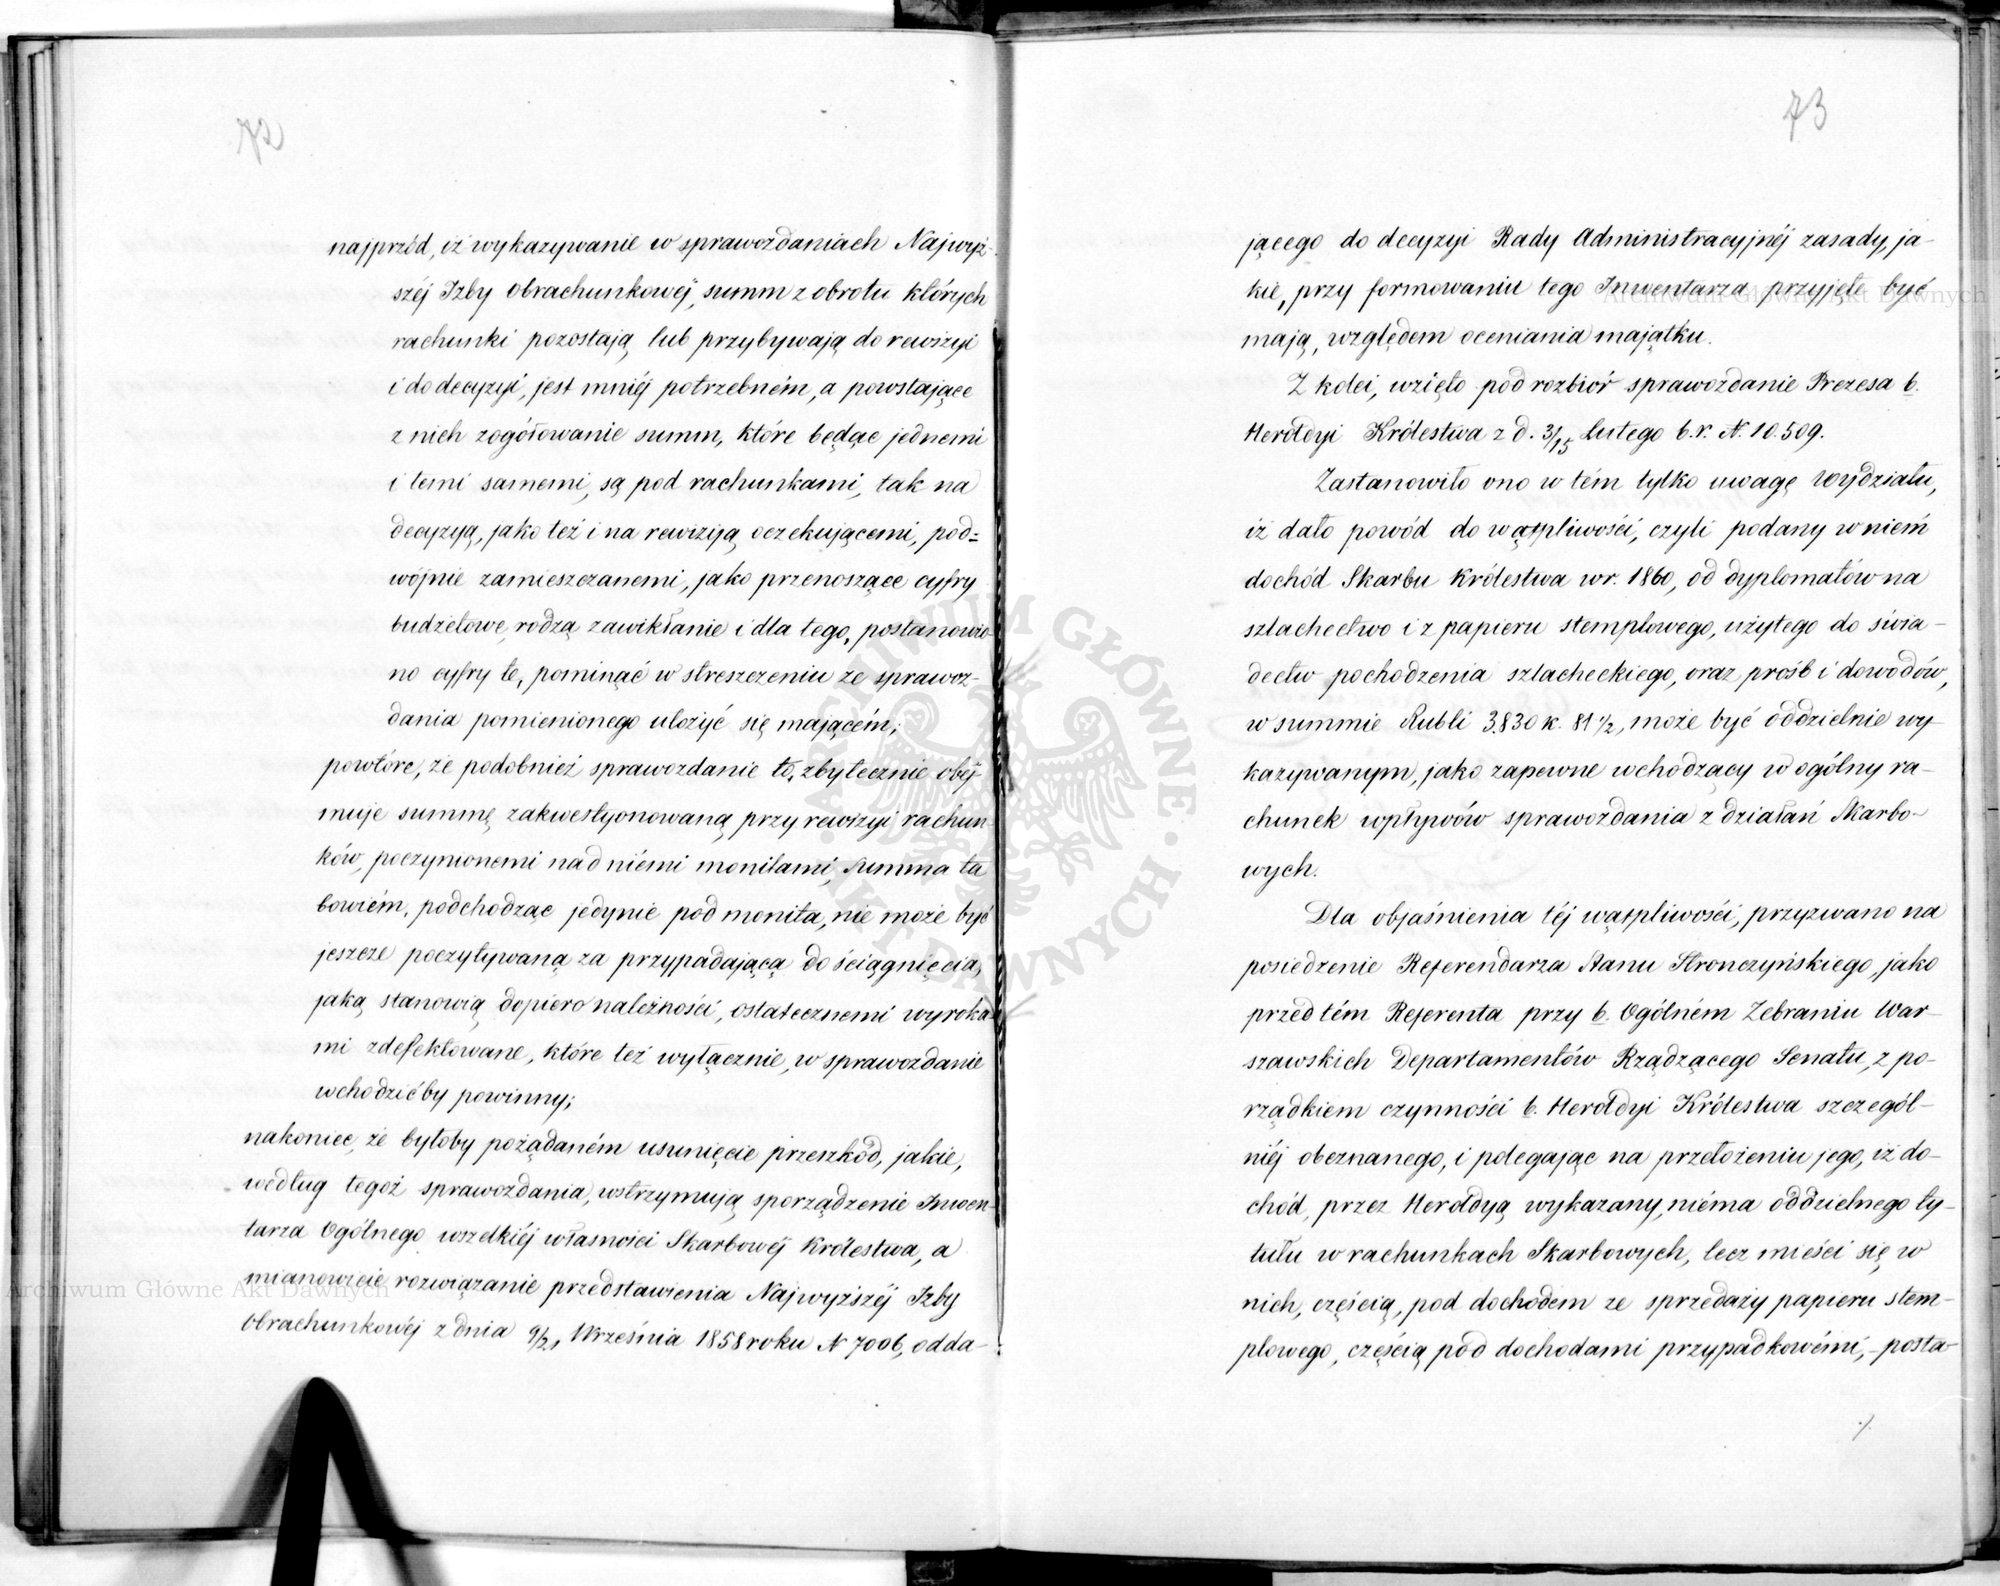 72
najprzód, iż wykazywanie w sprawozdaniach Najwyż-
széj Izby Obrachunkowéj, summ z obrotu których
rachunki pozostają lub przybywają do rewizyi
i do decyzyi, jest mniéj potrzebném, a powstające
z nich zogółowanie summ, które będąc jednemi
i temi samemi, są pod rachunkami, tak na
decyzyą, jako też i na rewizyą oczekującemi, pod=
wójnie zamieszczanemi, jako przenoszące cyfry
budżetowe, rodzą zawikłanie i dla tego, postanowio-
no cyfry te, pominąć w streszczeniu ze sprawoz-
dania pomienionego ułożyć się mającém;
powtóre, że podobnież sprawozdanie to, zbytecznie obéj-
muje summę zakwestyonowaną przy rewizyi rachun-
ków, poczynionemi nad niémi monitami, Summa ta
bowiém, podchodząc jedynie pod monita, nie może być
jeszcze poczytywaną za przypadającą do ściągnięcia,
jaką stanowią dopiero należności, ostatecznemi wyroka-
mi zdefektowane, które też wyłącznie, w sprawozdanie
wchodzić by powinny;
nakoniec, że byłoby pożądaném usunięcie przeszkód, jakie,
według tegoż sprawozdania, wstrzymują sporządzenie Inwen-
tarza Ogólnego wszelkiéj własności Skarbowéj Królestwa, a
mianowicie rozwiązanie przedstawienia Najwyższéj Izby
Obrachunkowéj z dnia 9/21 Września 1858 roku N 7006, odda-
73
jącego do decyzyi Rady Administracyjnéj zasady, ja-
kie, przy formowaniu tego Inwentarza przyjęte być
mają, względem oceniania majątku.
Z kolei, wzięto pod rozbiór sprawozdanie Prezesa b.
Heroldyi Królestwa z d. 3/15 Lutego b.r. N. 10.509.
Zastanowiło ono w tém tylko uwagę Wydziału,
iż dało powód do wątpliwości, czyli podany w niém
dochód Skarbu Królestwa w r. 1860, od dyplomatów na
szlachectwo i z papieru stemplowego, użytego do świa-
dectw pochodzenia szlacheckiego, oraz próśb i dowodów,
w summie Rubli 3.830 k. 81 1/2, może być oddzielnie wy-
kazywanym, jako zapewne wchodzący w ogólny ra-
chunek wpływów sprawozdania z działań Skarbo-
wych.
Dla objaśnienia téj wątpliwości, przyzwano na
posiedzenie Referendarza Stanu Stronczyńskiego, jako
przed tém Referenta przy b. Ogólném Zebraniu War-
szawskich Departamentów Rządzącego Senatu, z po-
rządkiem czynności b. Heroldyi Królestwa szczegól-
niéj obeznanego, i polegając na przełożeniu jego, iż do-
chód, przez Heroldyą wykazany, niéma oddzielnego ty-
tułu w rachunkach Skarbowych, lecz mieści się w
nich, częścią, pod dochodem ze sprzedaży papieru stem-
plowego, częścią pod dochodami przypadkowémi, – posta-
./.
ARCHIWUM GŁÓWNE AKT DAWNYCH
Archiwum Główne Akt Dawnych
Archiwum Główne Akt Dawnych